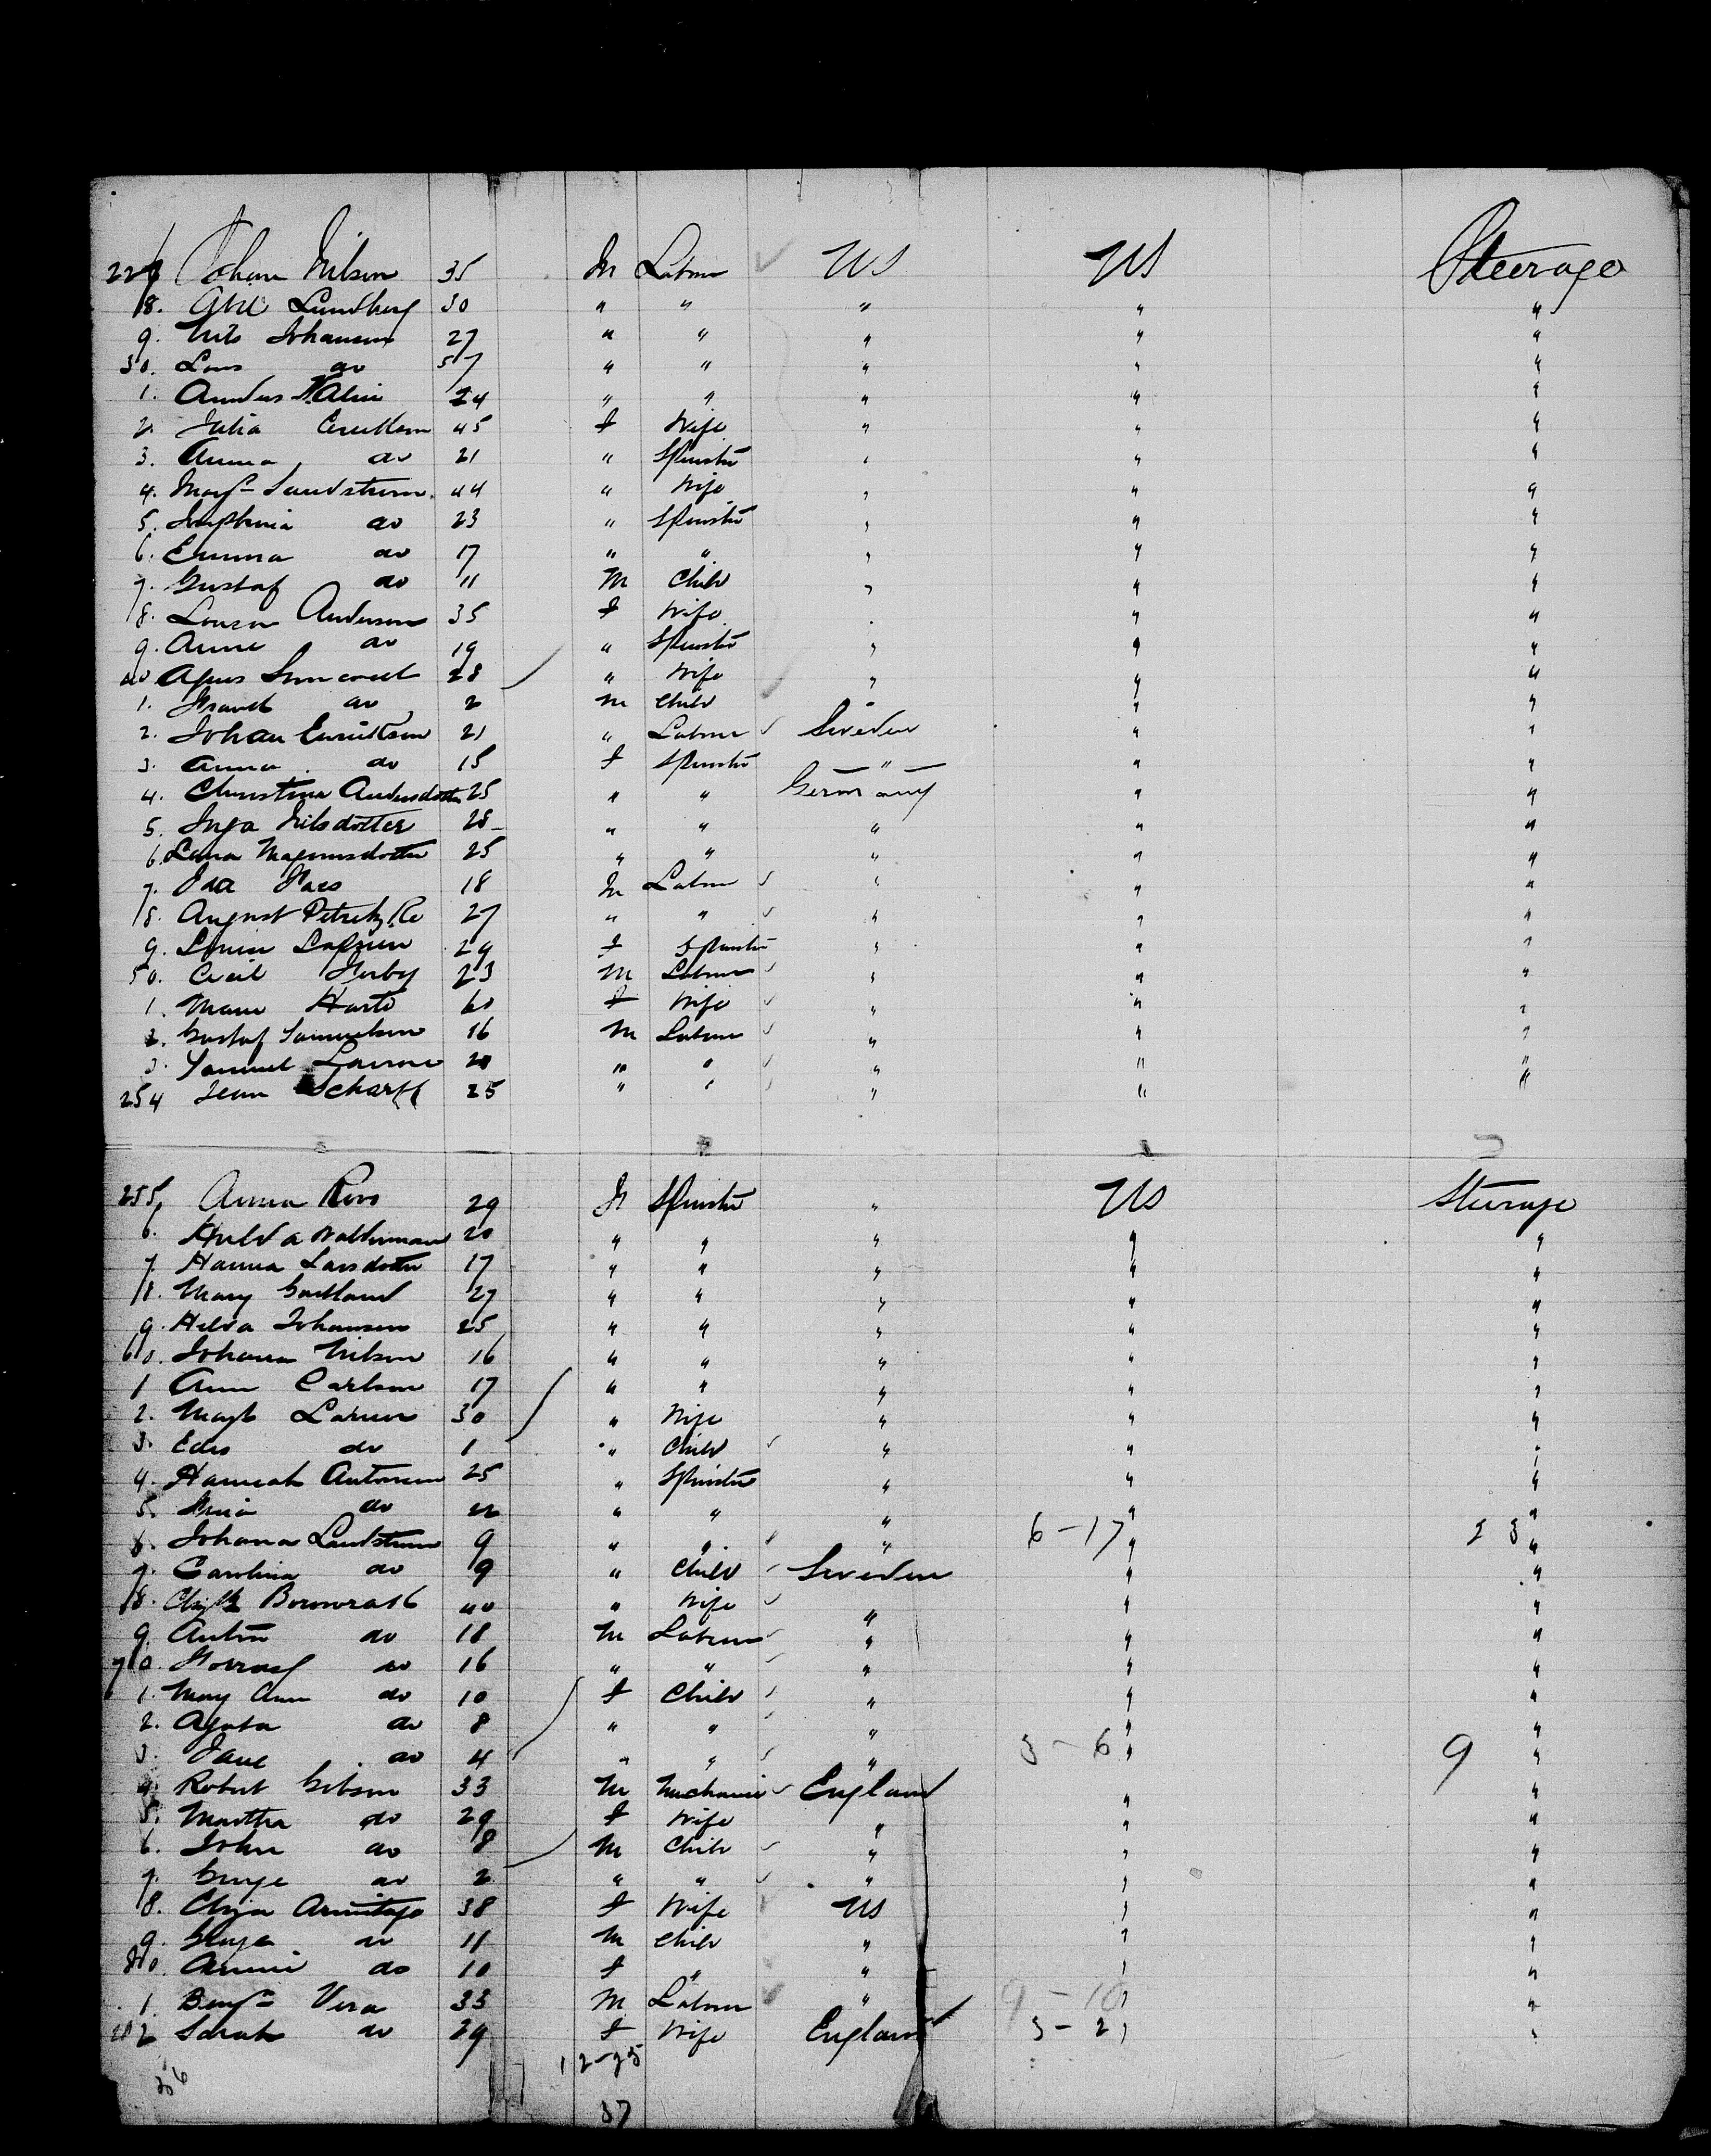 227 Johan Nilson 35 M Labour US US Steerage
8. Abel Lundberg 30 " " " " "
9. Nils Johanson 27 " " " " "
30. Lars do 57 " " " " "
1. Anders 24 " " " " "
2. Julia 45 F Wife " " "
3. Anna do 21 " Spinster " " "
4. Margt Sandstrom 44 " Wife " " "
5. Josephina do 23 " Spinster " " "
6. Emma do 17 " " " " "
7. Gustaf do 11 M Child " " "
8. Louisa Anderson 35 F Wife " " "
9. Anne do 19 " Spinster " " "
40 Agnes 28 " Wife " " "
1. do 2 M Child " " "
2. Johan 21 " Labour Sweden " "
3. Anna do 15 F Spinster " " "
4. Christina Andersdotter 25 " " Germany " "
5. Inga Nilsdotter 28 " " " " "
6. Lena Magnusdotter 25 " " " " "
7. Ida 18 M Labour " " "
8. August 27 " " " " "
9. Louise 29 F Spinster " " "
50. Cecil 23 M Labour " " "
1. Marie Harto 60 F Wife " " "
2. Gustaf Samuelson 16 M Labour " " "
3. Samuel 20 " " " " "
254 Jean Scharff 25 " " " " "
255 Anna Roos 29 F Spinster " US Steerage
6. Hulda Walterman 20 " " " " "
7. Hanna Larsdotter 17 " " " " "
8. Mary 27 " " " " "
9. Hilda Johanson 25 " " " " "
60. Johana Nilson 16 " " " " "
1 Ann Carlson 17 " " " " "
2. Margt Larson 30 " Wife " " "
3. do 1 " Child " " "
4. Hannah Antonson 25 " Spinster " " "
5. do 22 " " " " "
6. Johana Landstrum 9 " " " 6-17 " 23 "
7. Carolina do 9 " Child Sweden " "
8. 40 " Wife " " "
9. Anton do 18 M Labour " " "
70. do 16 " " " " "
1. Mary Ann do 10 F Child " " "
2. Agata do 8 " " " " "
3. Jane do 4 " " " 3-6 " 9 "
4. Robert Gibson 33 M Mechanic England " "
5. Martha do 29 F Wife " " "
6. John do 8 M Child " " "
7. George do 2 " " " " "
8. Eliza Armitage 38 F Wife US " "
9. George do 11 M Child " " "
80. Annie do 10 F " " " "
1. Benjn Vera 33 M Labour " 9-10 " "
282 Sarah do 29 F Wife England 3-2 " "
36 12-25
37